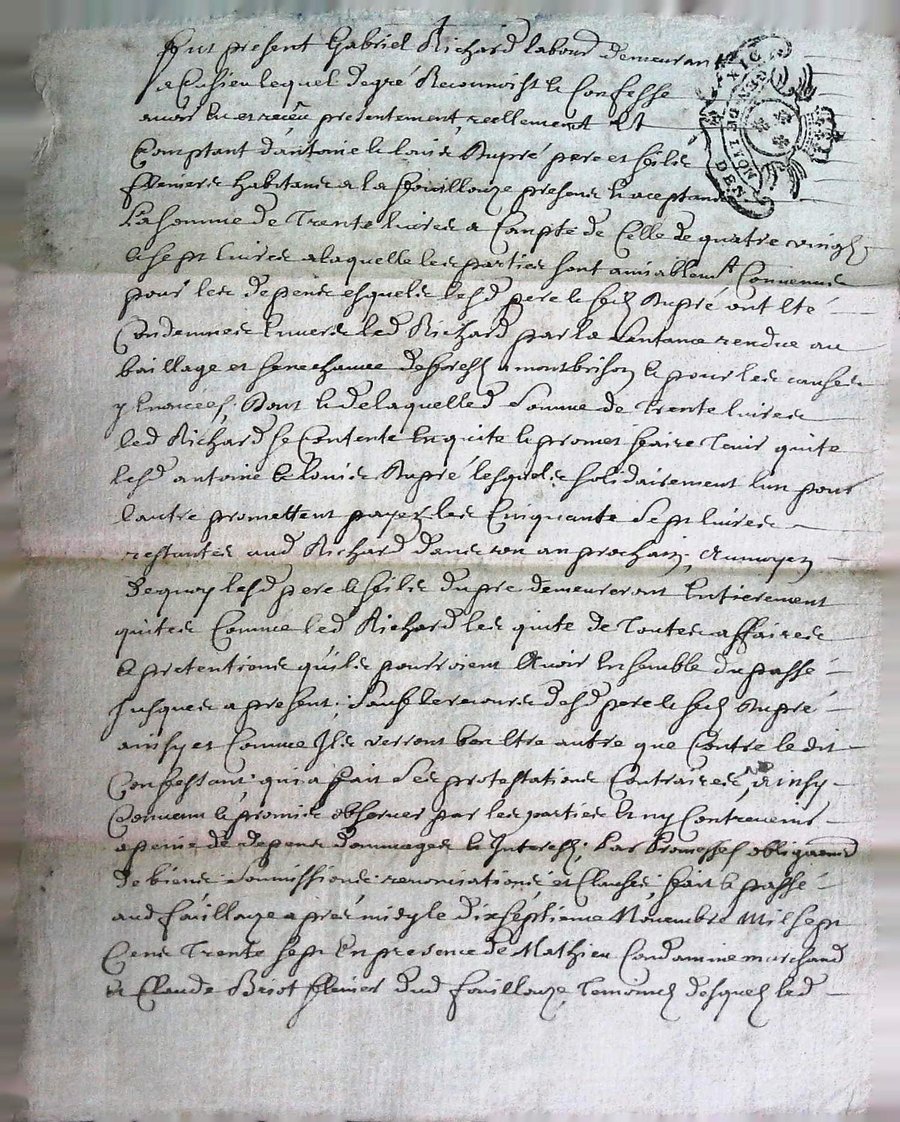 Fut present Gabriel Richard labour demeurant
a Cusieu lequel de gré Reconnoist et Confesse
avoir eu et reçeu presentement, reellement Et
Comptant d'antoine et louis Dupré pere et fils
habitans a la fouillouze presens et aceptans
La somme de Trente livres a Compte de Celle de quatre vingt
et sept livres a laquelle les parties sont amiablemt Convenues
pour les depens esquels lesd pere et fils Dupré ont eté
Condemnes envers led Richard par la Sentance rendue au
baillage et senechaucé de forest a montbrison et pour les causes
y enoncees, Dont et de laquelle d Somme de Trente livres
led Richard se Contente En quite et promet faire Tenir quite
lesd antoine et louis Dupré lesquels solidairement l'un pour
l'autre promettent payer les Cinquante Sept livres
restantes aud Richard dans un an prochain, Aumoyen
Dequoy lesd pere et fils dupre demeureront Entierement
quites Comme led Richard les quite de Toutes affaires
et pretentions qu'ils pourroient Avoir Ensemble du passé
Jusques a present, Sauf le recours desd pere et fils Dupré
ainsy et Comme Ils verront bon Etre autre que Contre le dit
Confessant, qui a fait Ses protestations Contraires, ainsy
Convenu et promis observer par les parties et n'y Contrevenir
a peine de depens dommages et Interests, Par Promesses obligations
de biens Soumissions renonciations et Clauses, fait et passé
aud fouillouze apres midy le dix septieme Novembre Mil sept
Cens Trente sept En presence de Mathieu Condamine marchand
et Claude Briot dud fouillouze Temoins desquels led
DE LYON
DEN